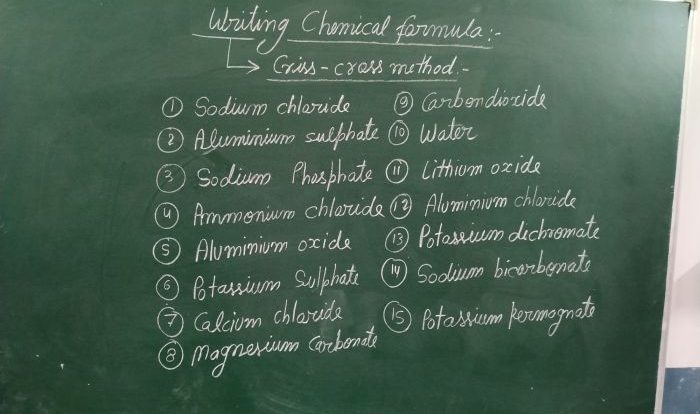 Writing Chemical formula:-
Criss-cross method.-
1 Sodium chloride
2 Aluminium sulphate
3 Sodium Phasphate
4 Ammonium chloride
5 Aluminium oxide
6 Potassium Sulphate
7 Calcium chloride
8 Magnesium Carbonate
9 Carbondioxide
10 Water
11 Lithium oxide
12 Aluminium chloride
13 Potassium dichromate
14 Sodium bicarbonate
15 Potassium permagnate